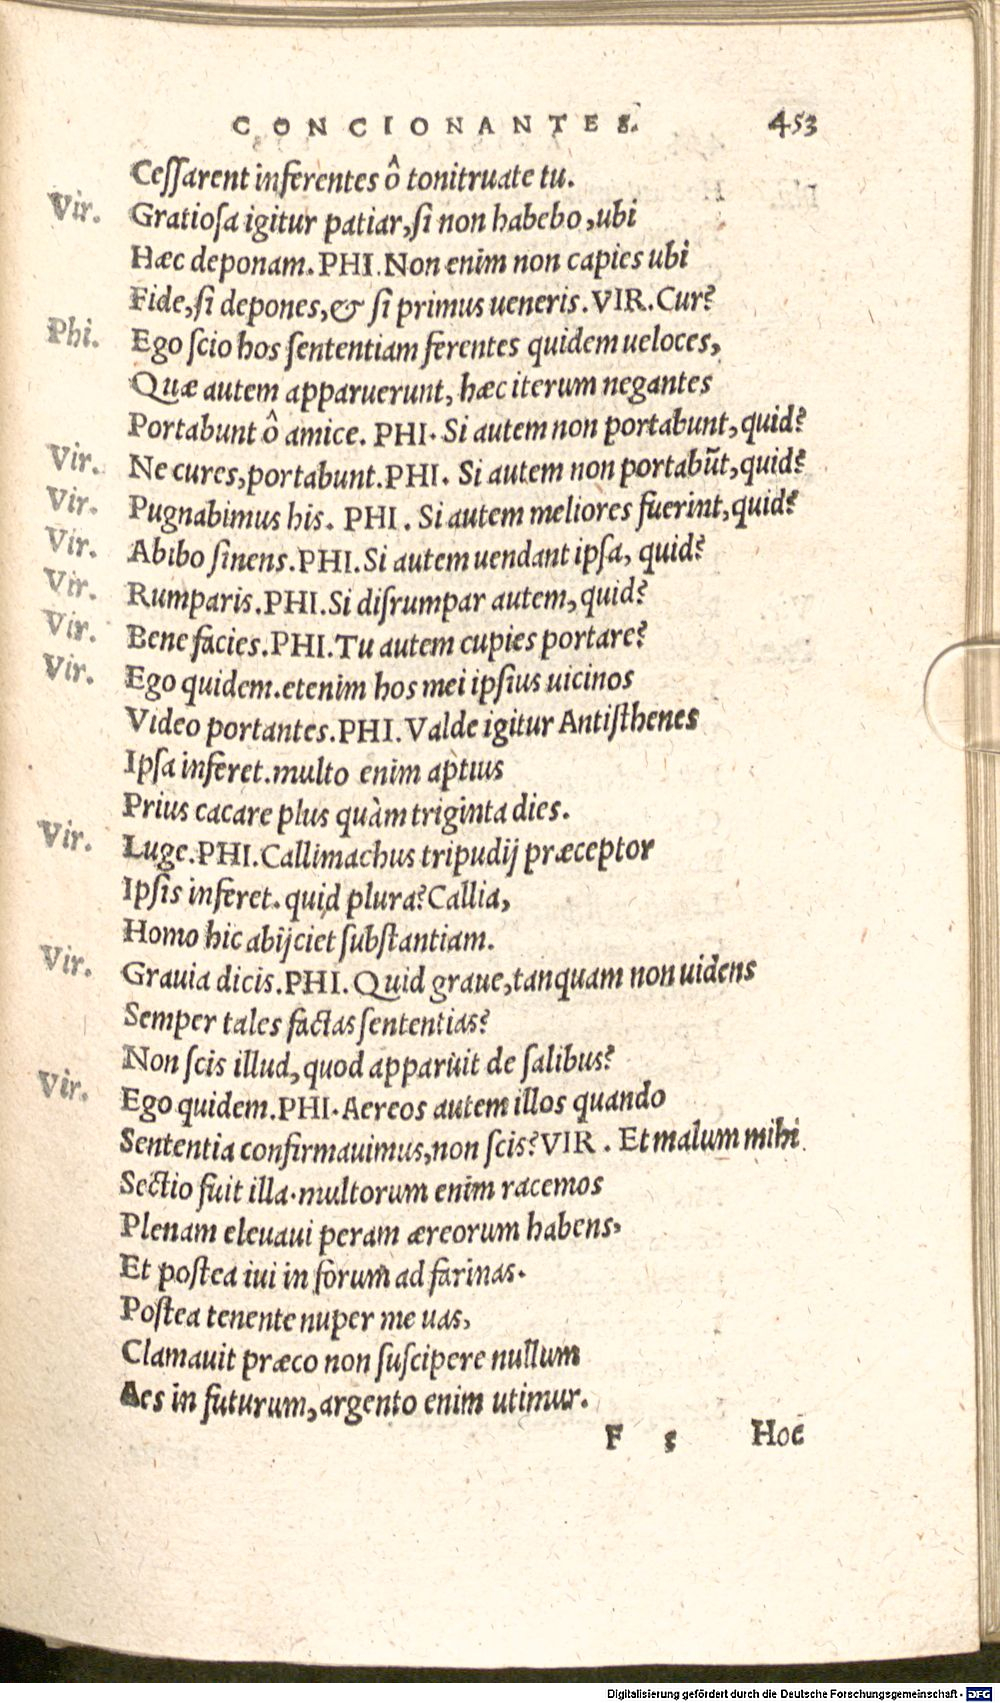 CONCIONANTES. 453
Ceſſarent inferentes ô tonitruate tu.
Vir. Gratioſa igitur patiar, ſi non habebo, ubi
Hæc deponam. PHI. Non enim non capies ubi
Fide, ſi depones, & ſi primus ueneris. VIR. Cur?
Phi. Ego ſcio hos ſententiam ferentes quidem ueloces,
Quæ autem apparuerunt, hæc iterum negantes
Portabunt ô amice. PHI. Si autem non portabunt, quid?
Vir. Ne cures, portabunt. PHI. Si autem non portabũt, quid?
Vir. Pugnabimus his. PHI. Si autem meliores fuerint, quid?
Vir. Abibo ſinens. PHI. Si autem uendant ipſa, quid?
Vir. Rumparis. PHI. Si diſrumpar autem, quid?
Vir. Bene facies. PHI. Tu autem cupies portare?
Vir. Ego quidem. etenim hos mei ipſius uicinos
Video portantes. PHI. Valde igitur Antiſthenes
Ipſa inferet. multo enim aptius
Prius cacare plus quàm triginta dies.
Vir. Luge. PHI. Callimachus tripudij præceptor
Ipſis inferet. quid plura? Callia,
Homo hic abijciet ſubſtantiam.
Vir. Grauia dicis. PHI. Quid graue, tanquam non uidens
Semper tales factas ſententias?
Non ſcis illud, quod apparuit de ſalibus?
Vir. Ego quidem. PHI. Aereos autem illos quando
Sententia confirmauimus, non ſcis? VIR. Et malum mihi
Sectio fuit illa. multorum enim racemos
Plenam eleuaui peram æreorum habens,
Et poſtea iui in forum ad farinas.
Poſtea tenente nuper me uas,
Clamauit præco non ſuſcipere nullum
Aes in futurum, argento enim utimur.
F 5 Hoc
Digitalisierung gefördert durch die Deutsche Forschungsgemeinschaft - DFG